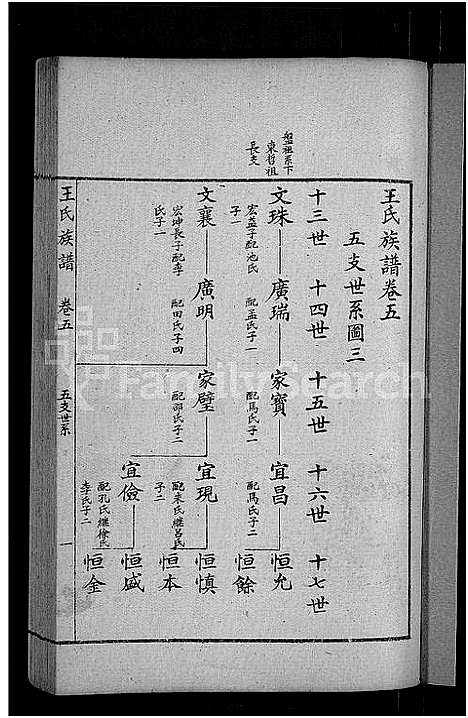 王氏族譜卷五
五支世系圖三
十三世 十四世 十五世 十六世 十七世
盤祖系下
東哲祖
長支
文珠 廣瑞 家寶 宜昌 恒允
宏益子配池氏
子一
配孟氏子一
配馬氏子一
配馬氏子二
恒餘
文襄 廣明 家璧 宜現 恒慎
宏坤長子配李
氏子一
配田氏子四
配邵氏子二
配朱氏繼呂氏
子二
恒本
宜儉 恒盛
配孔氏繼徐氏
李氏子二
恒金
王氏族譜 卷五 五支世系 一
FamilySearch